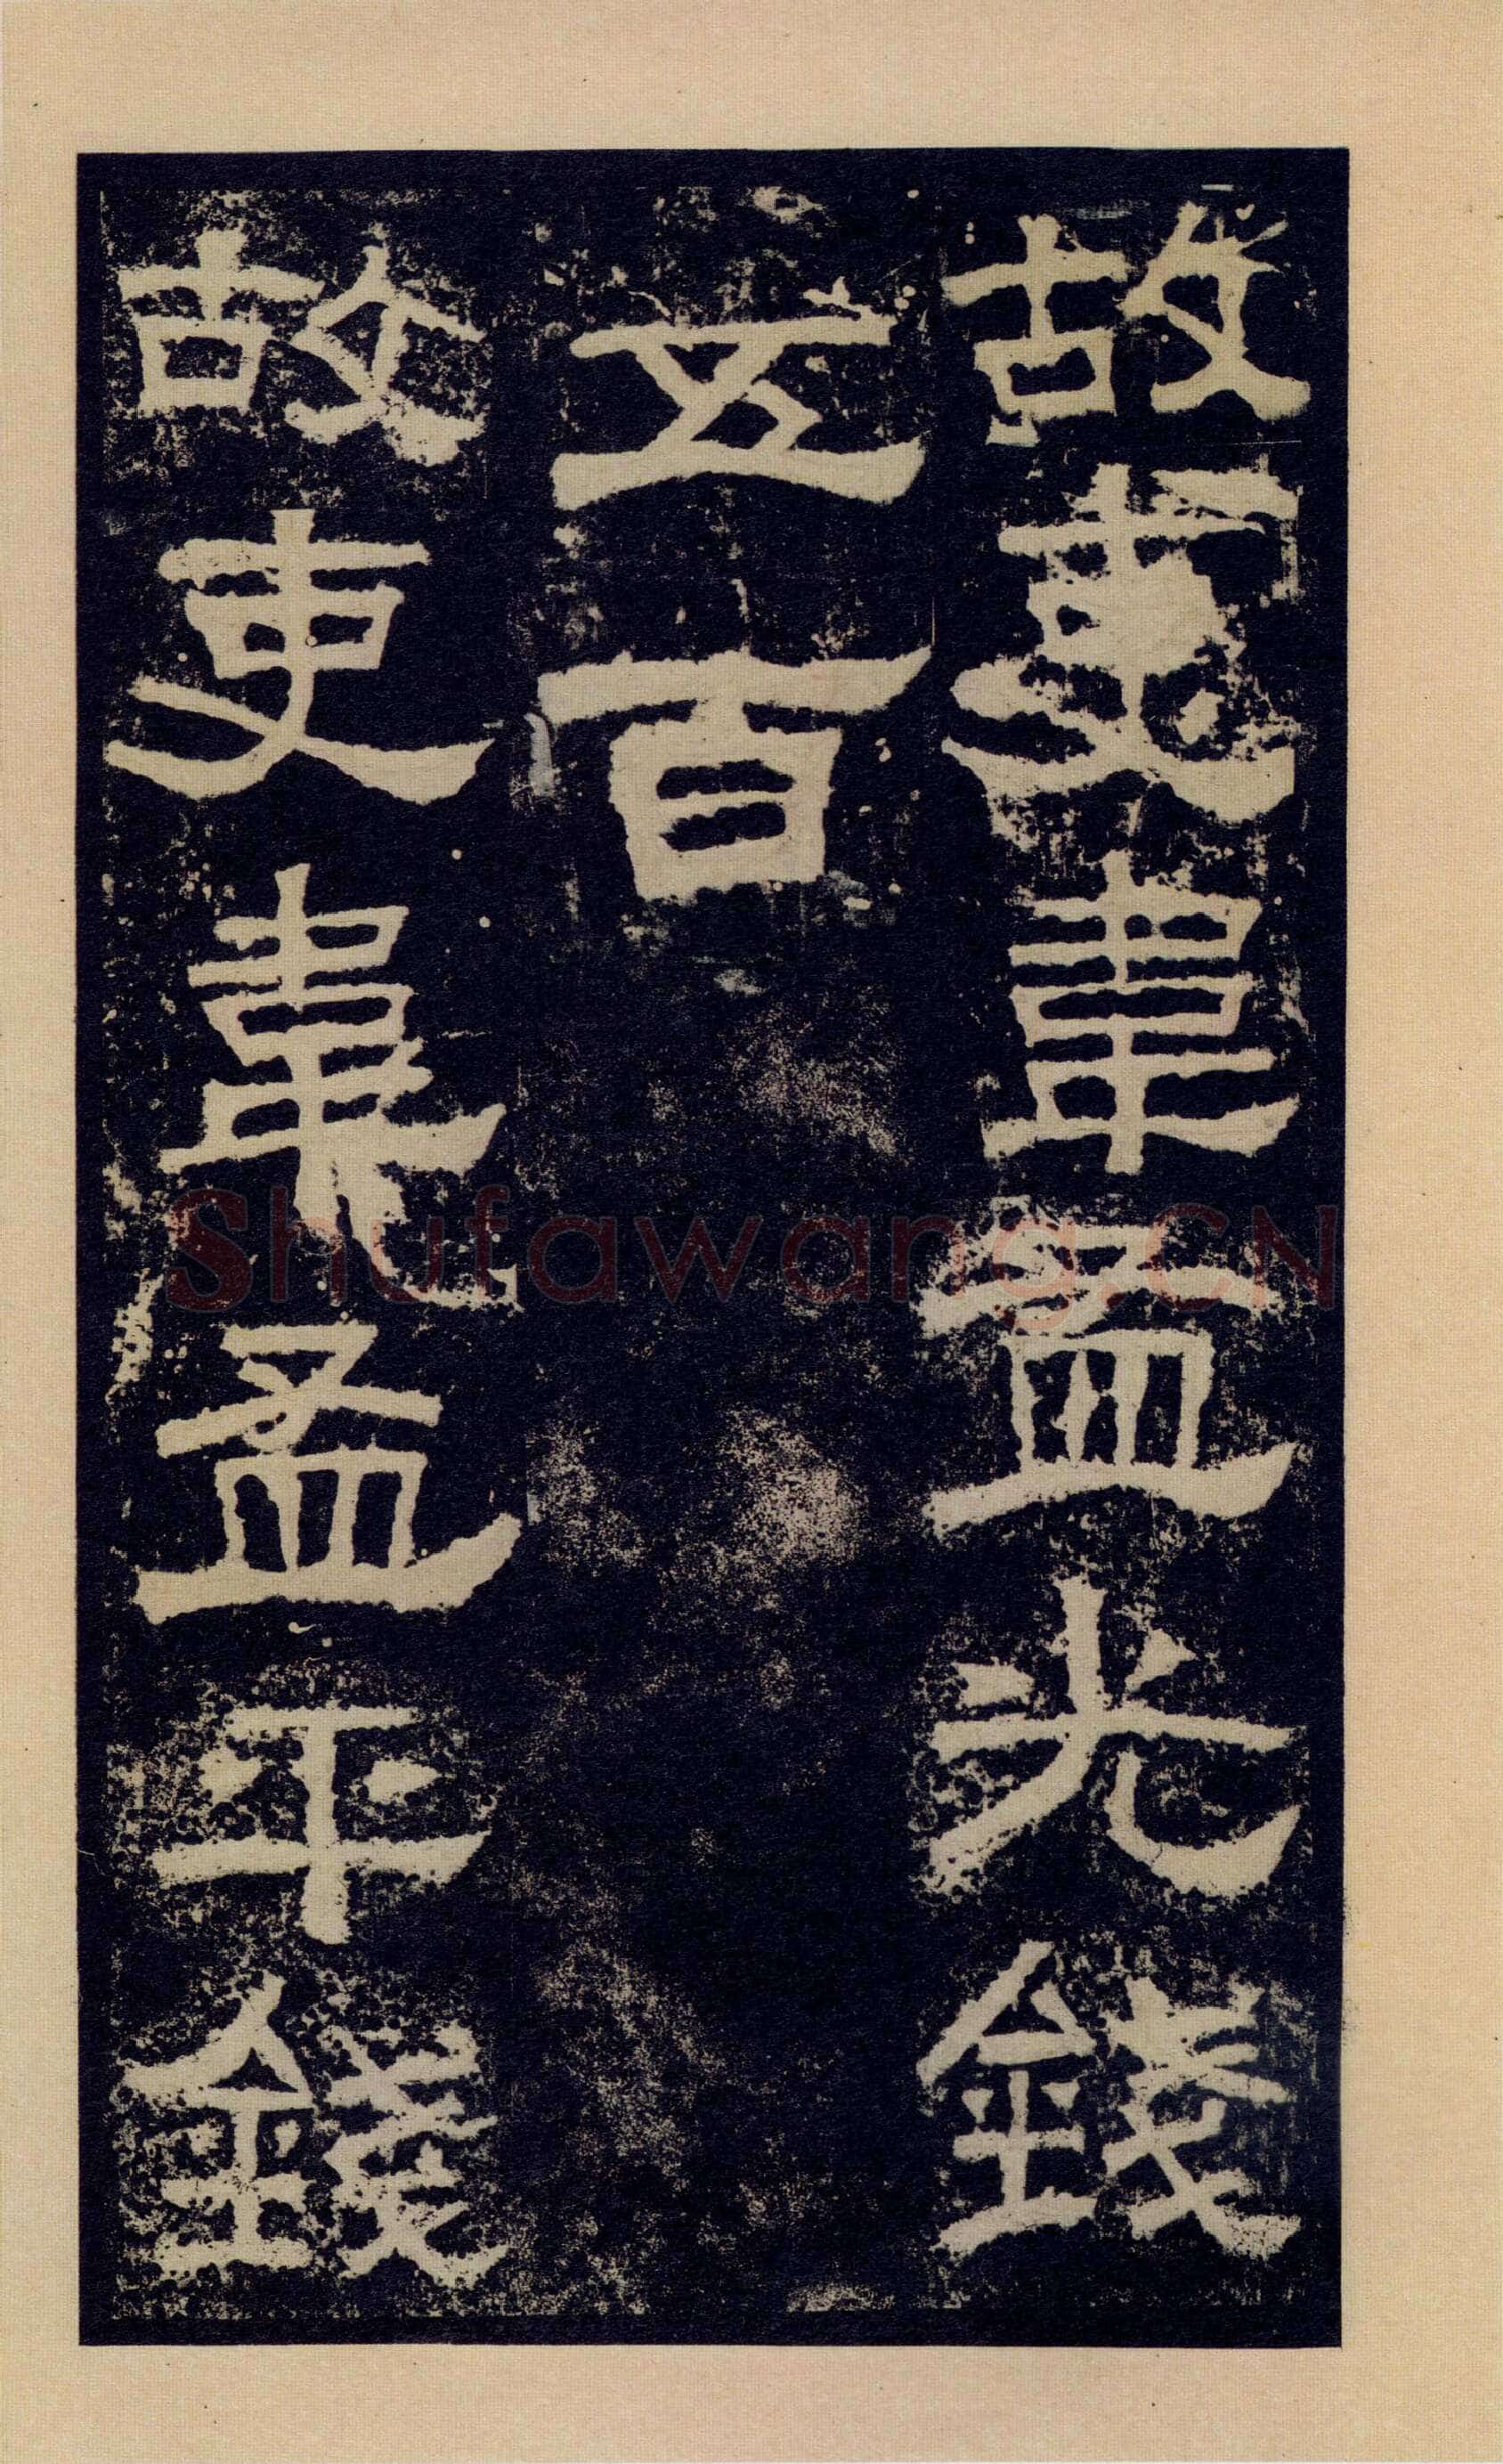 故吏韋孟光錢
五百
故吏韋孟平錢
Shufawang.CN